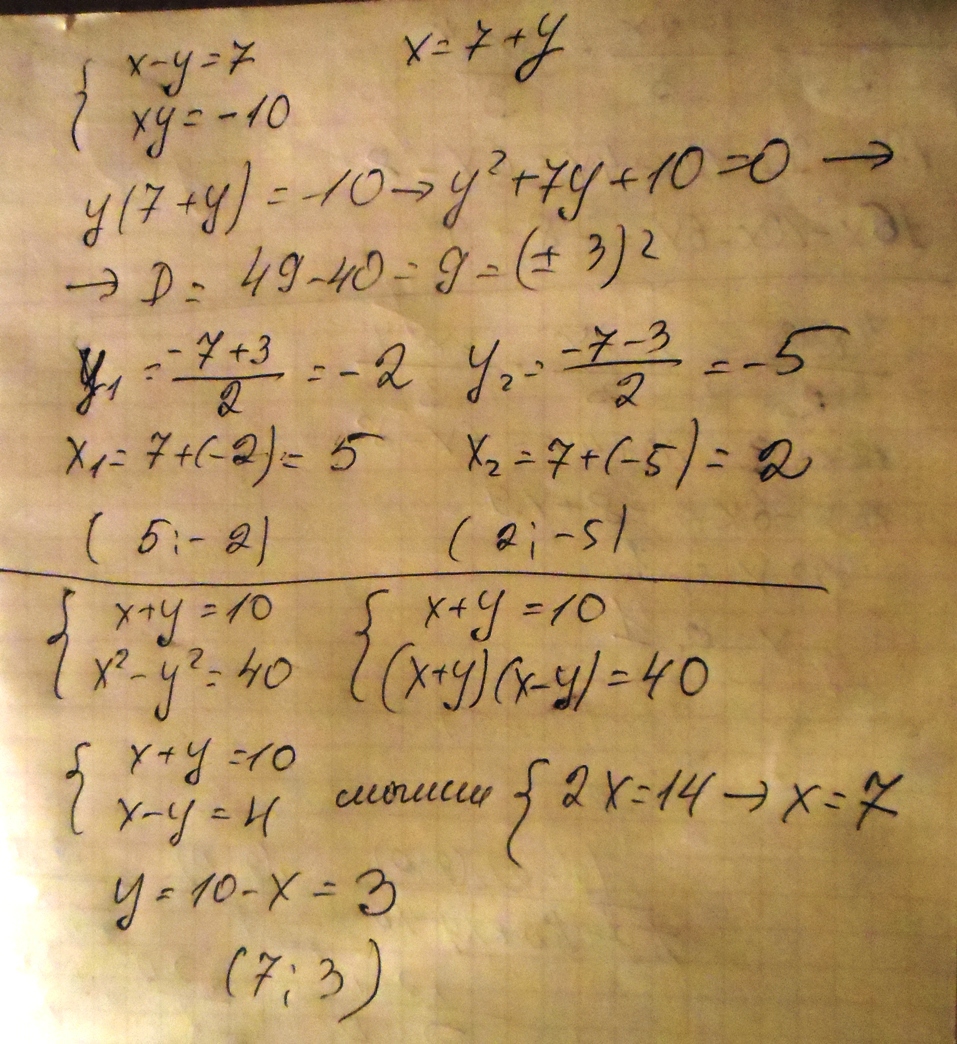 { x-y=7 x=7+y
xy=-10
y(7+y)=-10→y²+7y+10=0 →
→ D= 49-40=9=(±3)²
y₁=(-7+3)/2=-2 y₂=(-7-3)/2=-5
x₁=7+(-2)=5 x₂=7+(-5)=2
(5;-2) (2;-5)
{ x+y=10 { x+y=10
x²-y²=40 (x+y)(x-y)=40
{ x+y=10
x-y=4 { 2x=14→x=7
y=10-x=3
(7;3)